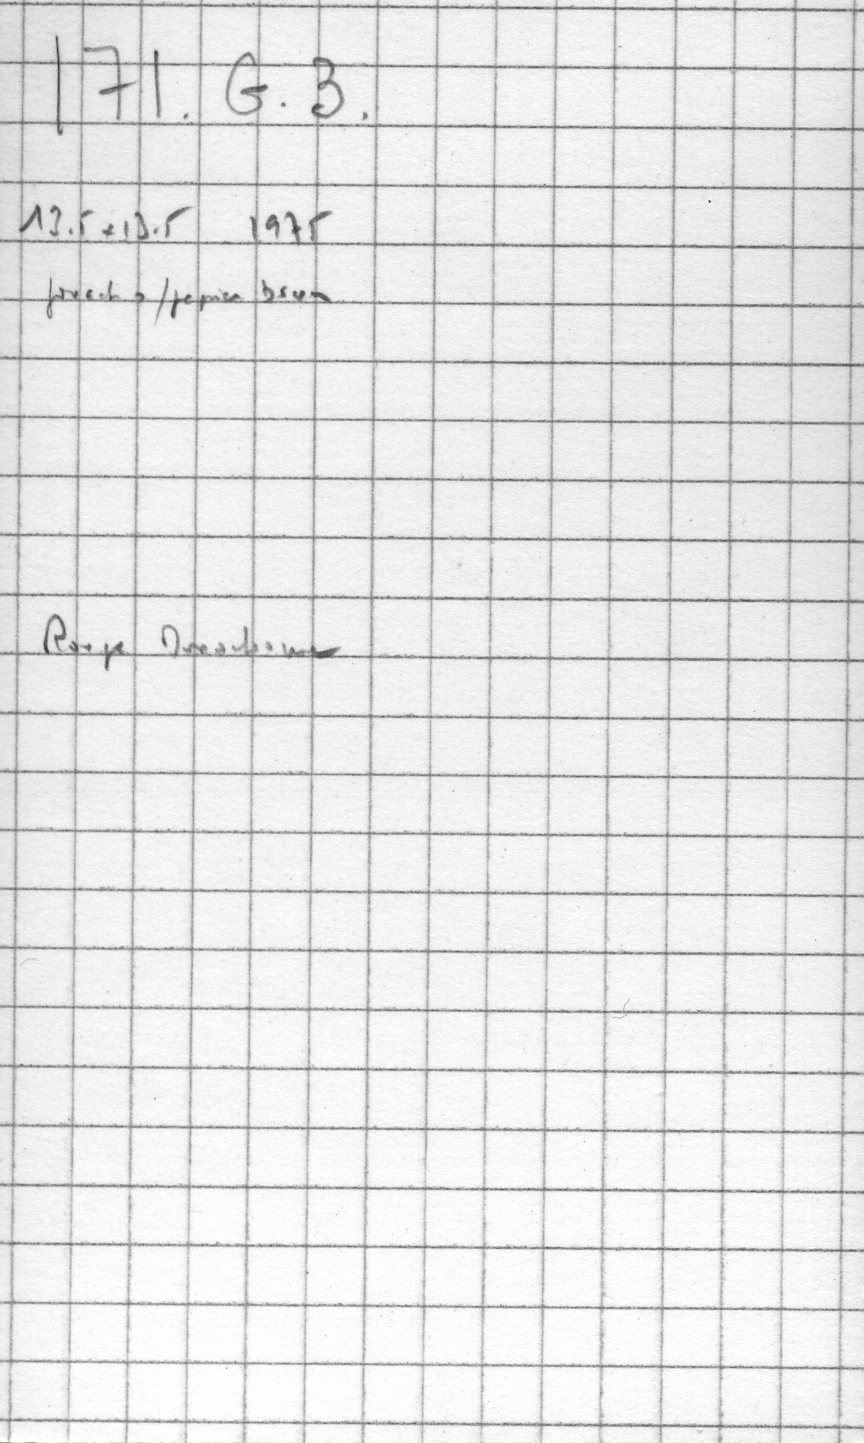 171. G. 3.
13.5 x 13.5 1975
gouache/papier brun
Rouge